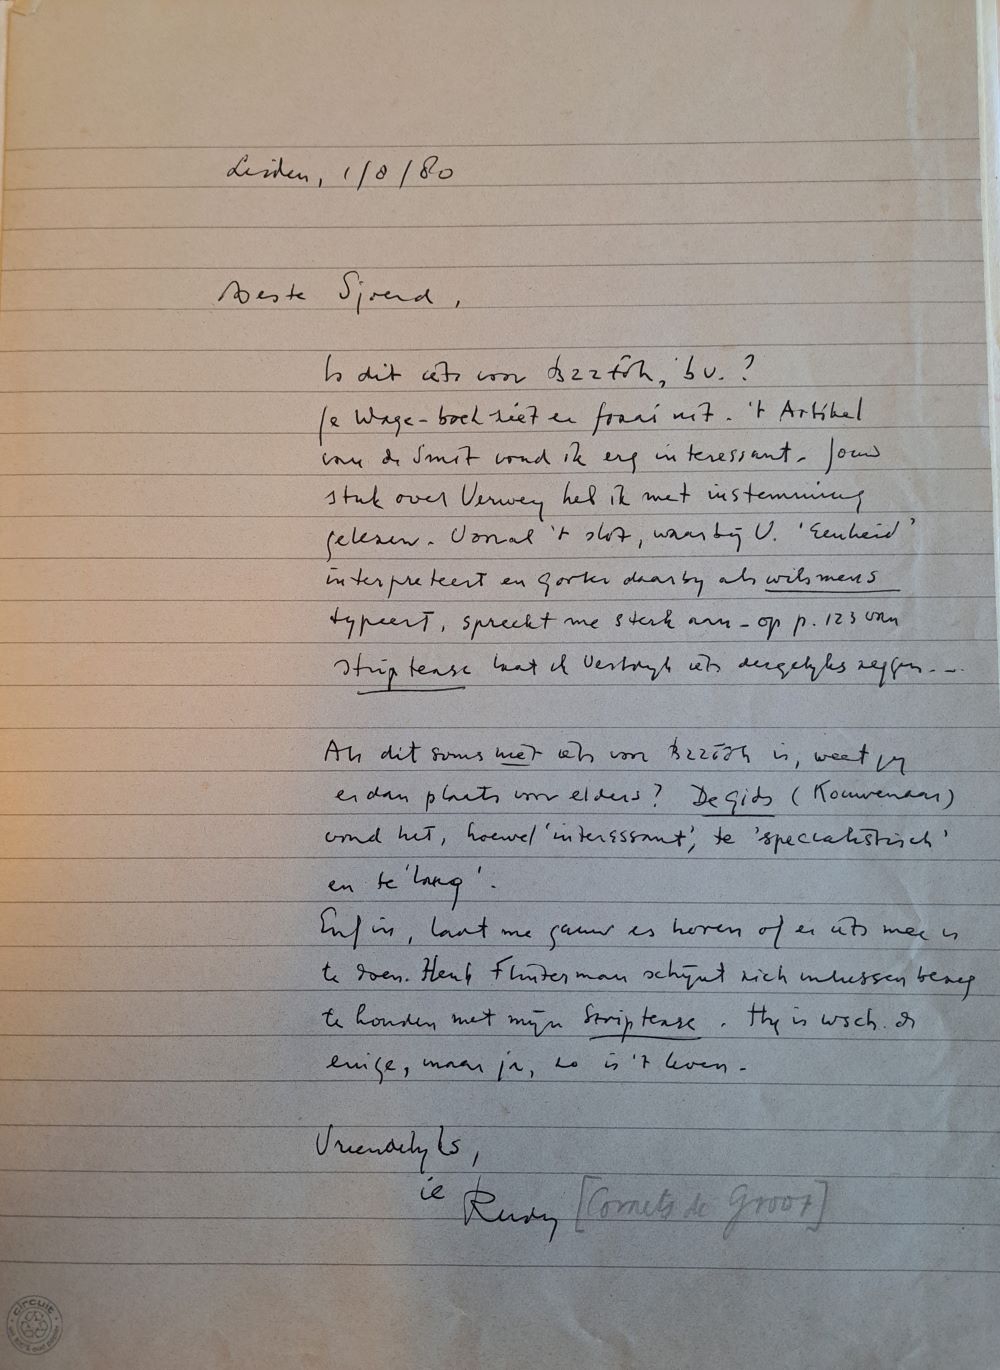 Leiden, 1/8/80
Beste Sjoerd,
Is dit iets voor Bzztôh, bv.?
Je Wage-boek ziet er fraai uit. 't Artikel
van de Smit vond ik erg interessant. Jouw
stuk over Verwey heb ik met instemming
gelezen. Vooral 't slot, waarbij V. 'Eenheid'
interpreteert en Gorter daarbij als wilsmens
typeert, spreekt me sterk aan - op p. 123 van
striptease laat ik Verbrugh iets dergelijks zeggen...
Als dit soms niet iets voor Bzztôh is, weet jij
er dan plaats voor elders? De Gids (Kouwenaar)
vond het, hoewel 'interessant', te 'specialistisch'
en te 'lang'.
Enfin, laat me gauw es horen of er iets mee is
te doen. Henk Flinterman schijnt zich intussen bezig
te houden met mijn Striptease. Hij is wsch. de
enige, maar ja, zo is 't leven.
Vriendelijks,
je Rudy [Cornets de Groot]
circuit